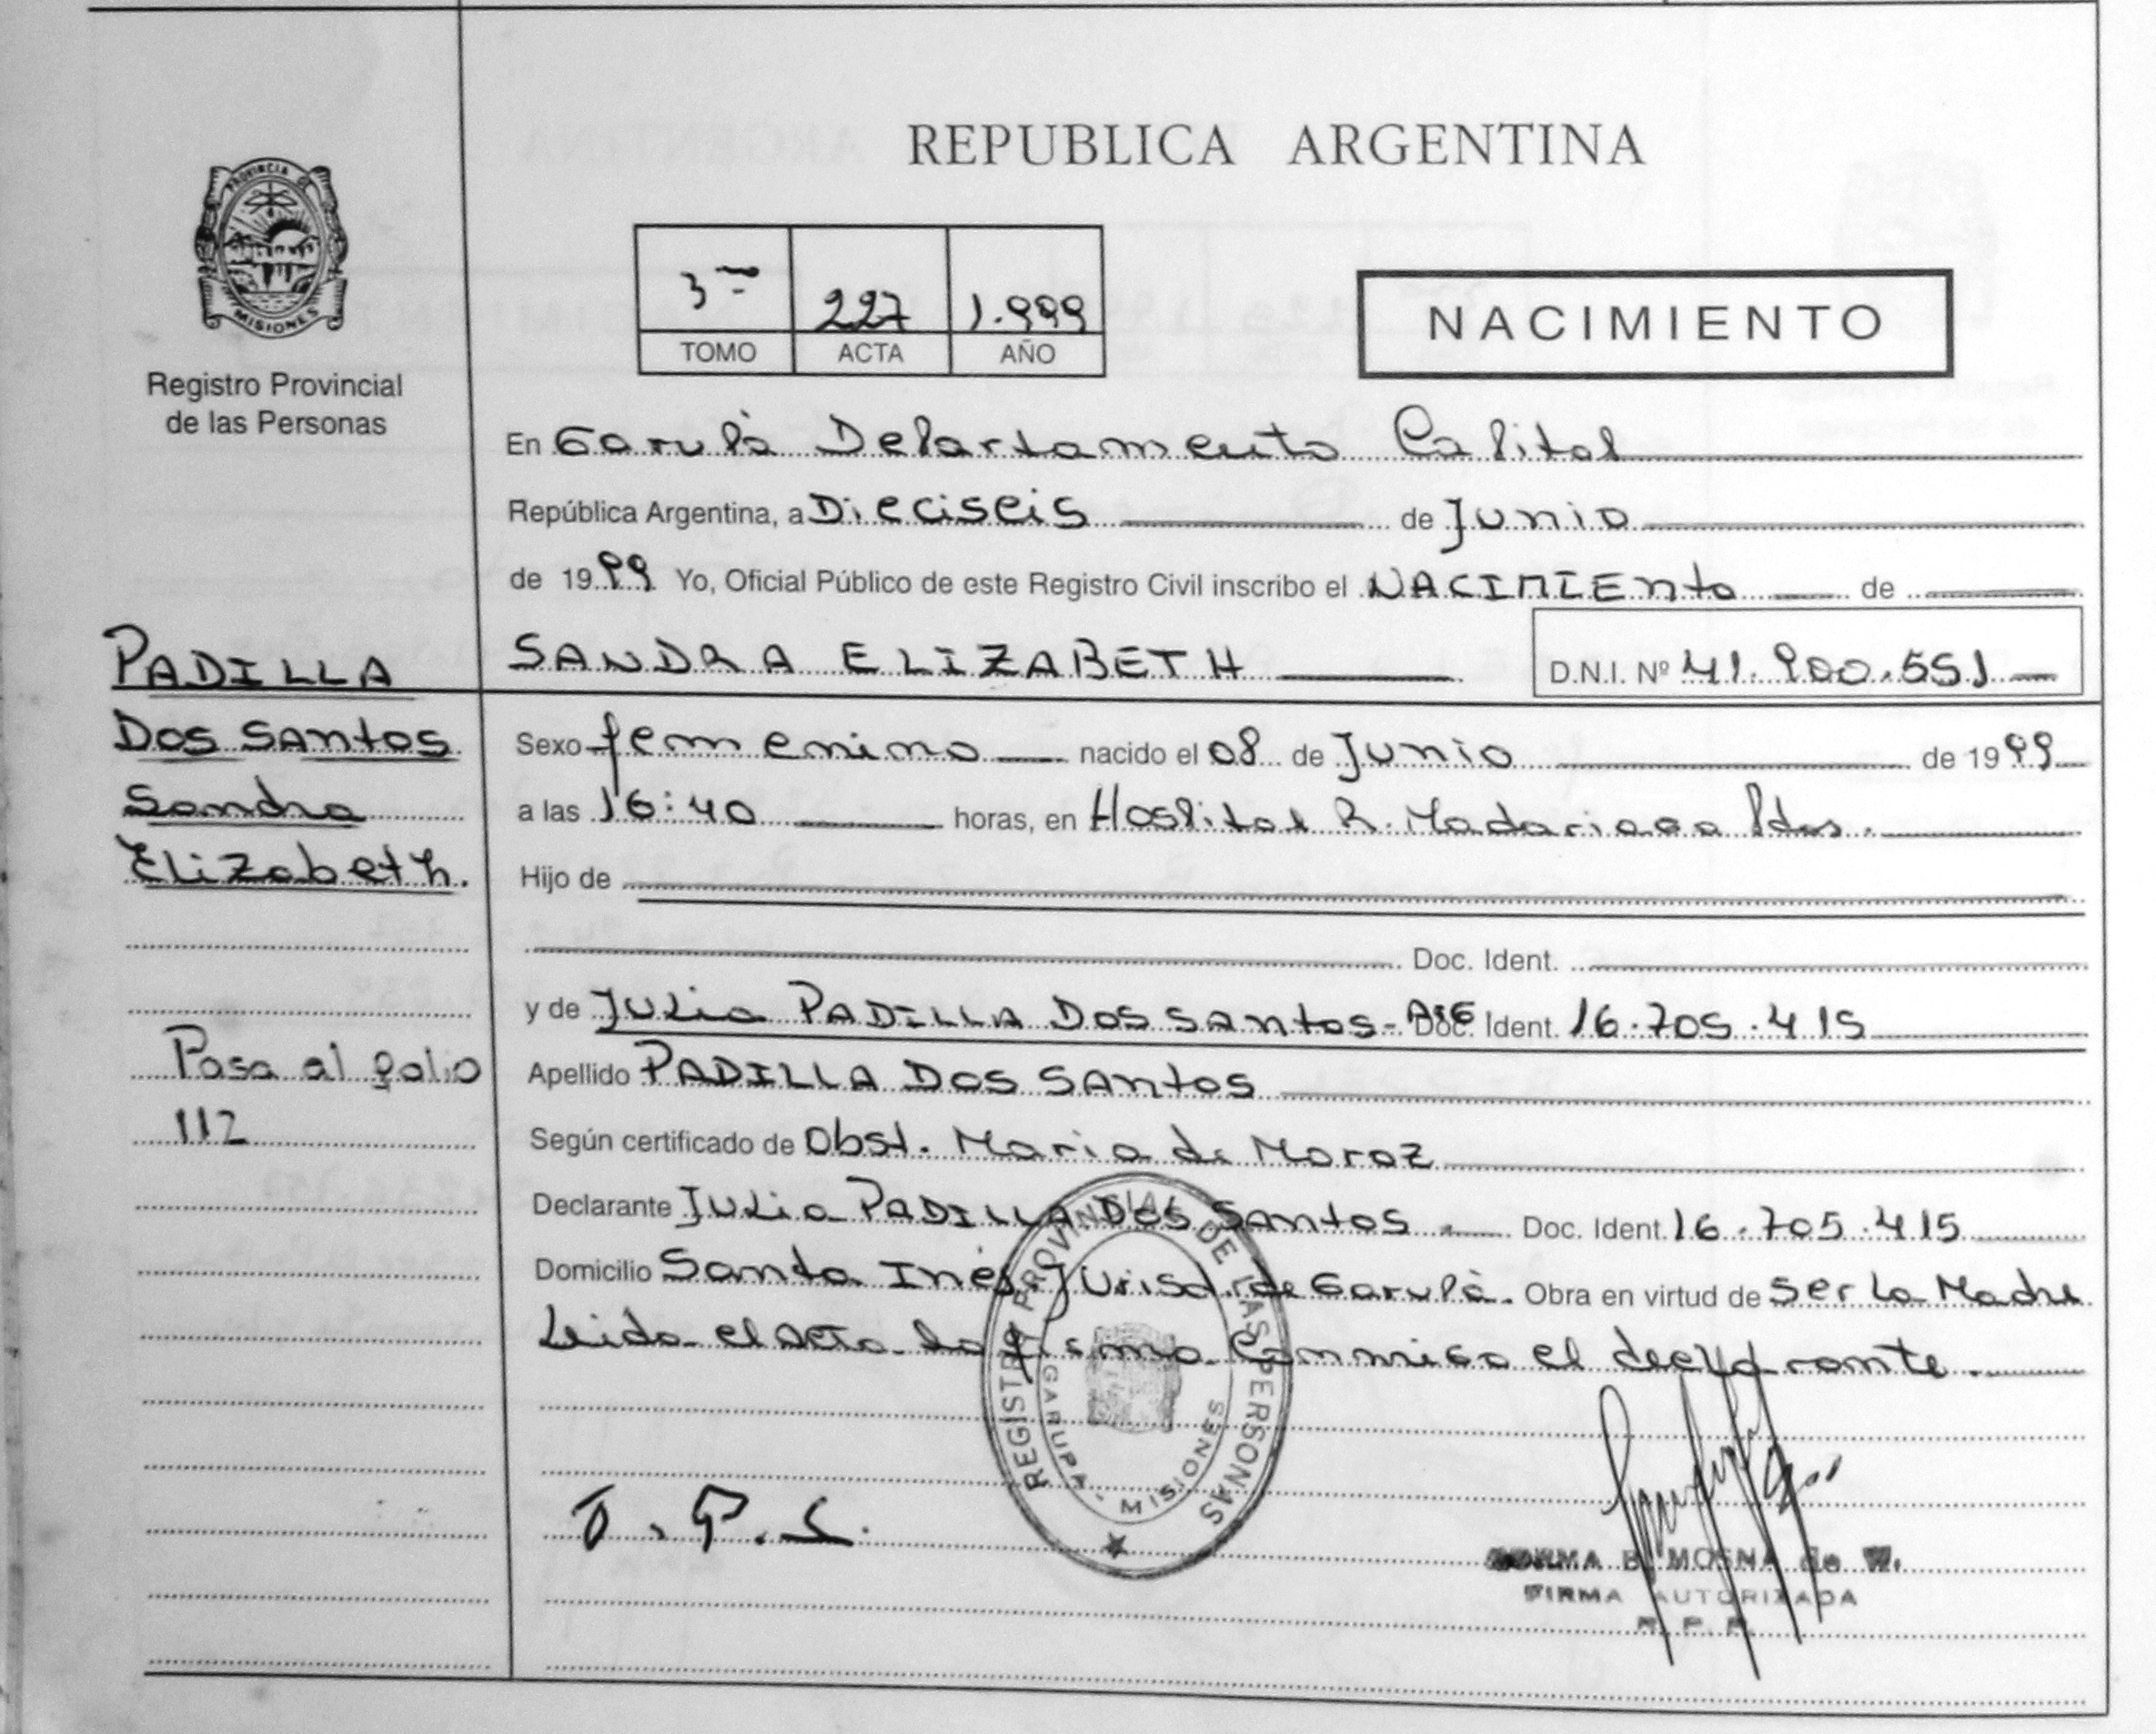 REPUBLICA ARGENTINA
PROVINCIA DE
MISIONES
Registro Provincial
de las Personas
3ro 227 1.999
TOMO ACTA AÑO
NACIMIENTO
En Garupá Departamento Capital
República Argentina, a Dieciseis de Junio
de 1999 Yo, Oficial Público de este Registro Civil inscribo el NACIMIENto de
SANDRA ELIZABETH D.N.I. Nº 41.900.551
PADILLA
Dos Santos
Sandra
Elizabeth.
Sexo femenino nacido el 08 de Junio de 1999
a las 16:40 horas, en Hospital R. Madariaga Pdas.
Hijo de
Doc. Ident.
y de Julia PADILLA Dos Santos - Doc. Ident. 16.705.415
Apellido PADILLA Dos SAntos
Pasa al folio
112
Según certificado de Obst. Maria de Moroz
Declarante Julia PADILLA Dos Santos Doc. Ident. 16.705.415
Domicilio Santa Inés Jurisd. de Garupá. Obra en virtud de ser la Madre
Leida el Acta la firma Conmigo el declarante.
REGISTRO PROVINCIAL DE LAS PERSONAS
GARUPA - MISIONES
J.P.S.
NORMA B. MOSNA de W.
FIRMA AUTORIZADA
R. P. P.